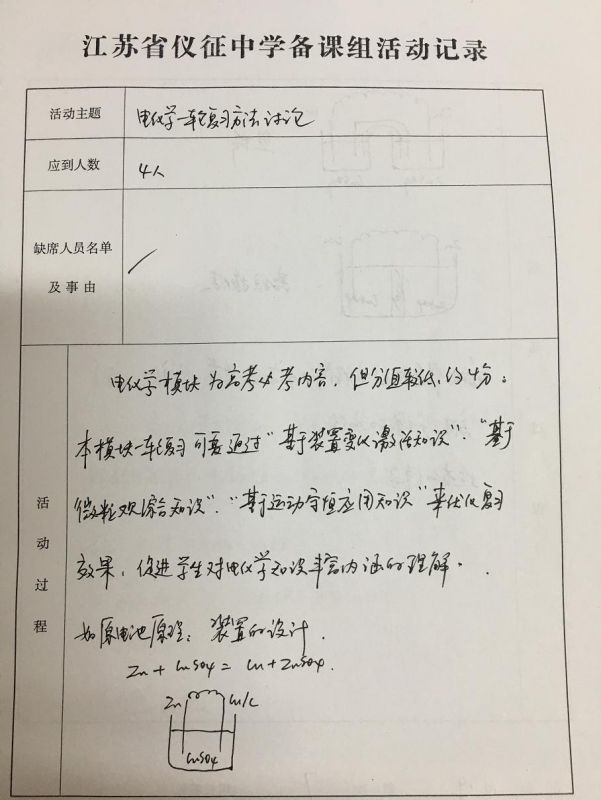 江苏省仪征中学备课组活动记录
活动主题
电化学一轮复习方法讨论
应到人数
4人
缺席人员名单
及事由
/
活动过程
电化学模块为高考必考内容，但分值较低，约4分。
本模块一轮复习可要通过“基于装置变化激活知识”、“基于
微粒观综合知识”、“基于运动守恒应用知识”来优化复习
效果，促进学生对电化学知识丰富内涵的理解。
如原电池原理：装置的设计．
Zn + CuSO4 = Cu + ZnSO4.
Zn Cu/C
CuSO4